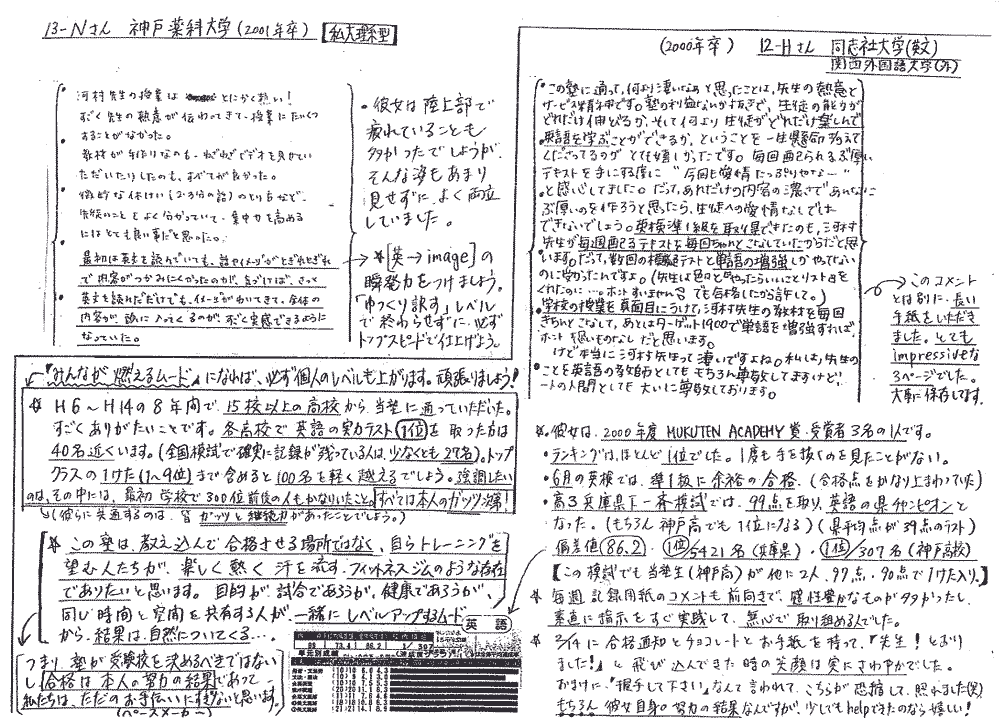 13-Nさん 神戸薬科大学(2001年卒) 私大理系型
・河村先生の授業は とにかく熱い!
すごく先生の熱意が伝わってきて、授業にたいくつ
することがなかった。
・教材が手作りなのも、わざわざビデオを見せて
いただいたりしたのも、すべてが良かった。
・微妙な休けい(2・3分の話)のとり方など、
生徒のことをよく分かっていて、集中力を高める
にはとても良い事だと思った。
・最初は英文を読んでいても、話やイメージがとぎれとぎれ
で内容がつかみにくかったのが、気づけば、さっと
英文を読んだだけでも、イメージがわいてきて、全体の
内容が、頭に入ってくるのが、すごく実感できるように
なっていた。
・彼女は陸上部で
疲れていることも
多かったでしょうが、
そんな姿もあまり
見せずに、よく両立
していました。
*[英→image]の
瞬発力をつけましょう。
「ゆっくり訳す」レベル
で終わらせずに、必ず
トップスピードで仕上げよう。
「みんなが燃えるムード」になれば、必ず個人のレベルも上がります。頑張りましょう!
☆ H6〜H14の8年間で、15校以上の高校から当塾に通っていただいた。
すごくありがたいことです。各高校で英語の実力テスト1位を取った方は
40名近くいます。(全国模試で確実に記録が残っている人は、少なくとも27名)。トップ
クラスの1けた(1〜9位)まで含めると100名を軽く越えるでしょう。強調したい
のは、その中には、最初学校で300位前後の人もかなりいたこと。すべては本人のガッツ次第!
(彼らに共通するのは、皆ガッツと継続力があったことでしょう。)
* この塾は、教え込んで合格させる場所ではなく、自らトレーニングを
望む人たちが、楽しく熱く汗を流す、フィットネスジムのような存在
でありたいと思います。目的が試合であろうが、健康であろうが、
同じ時間と空間を共有する人が、一緒にレベルアップするムード
から、結果は自然についてくる…
つまり、塾が受験校を決めるべきではない
し、合格は本人の努力の結果であって、
私たちは、ただのお手伝いに過ぎないと思います。
(ペースメーカー)
英語
(2000年卒) 12-Hさん 同志社大学(英文)
関西外国語大学(外)
・この塾に通って、何より凄いなあと思ったことは、先生の熱意と
サービス精神です。塾の利益なんかよそぎで、生徒の能力が
どれだけ伸びるか、そして何より生徒がどれだけ楽しんで
英語を学ぶことができるか、ということを一生懸命考えて
くださってるのがとても嬉しかったです。毎回配られるぶ厚い
テキストを手にする度に“今回も愛情たっぷりやなー”
と感心してました。だって、あれだけの内容の濃さであんなに
ぶ厚いのを作ろうと思ったら、生徒への愛情なしでした
できないでしょう。英検準1級を取得できたのも、河村
先生が毎週配るテキストを毎回ちゃんとこなしていたからだと思
います。だって、数回の模擬テストと単語の増強しかやってない
のに受かったんですよ。(先生は色々と“やったらいいことリスト”を
くれたのに…。ホントすいません でも合格したから許して。)
・学校の授業を真面目にうけて、河村先生の教材を毎回
きちんとこなして、あとはターゲット1900で単語を増強すれば
ホント恐いものなしだと思います。
けど本当に河村先生って凄いですよね。私は、先生の
ことを英語の教師としてもモチろん尊敬してますけど、
一人の人間としても大いに尊敬しております。
このコメント
とは別に、長い
手紙をいただき
ました。とても
impressiveな
3ページでした。
大事に保存してます。
*彼女は、2000年度 MUKUTEN ACADEMY賞・受賞者3名の1人です。
・ランキングは、ほとんど1位でした。1度も手を抜くのを見たことがない。
・6月の英検では、準1級に余裕の合格。(合格点をかなり上まわっていた)
・高3兵庫県下一斉模試では、99点を取り、英語の県チャンピオンと
なった。(もちろん神戸高でも1位になる)(県平均点が39点のテスト)
偏差値86.2・1位/5421名(兵庫県)・1位/307名(神戸高校)
【この模試でも当塾生(神戸高)が他に2人、97点・90点で1けた入り。】
* 毎週、記録用紙のコメントも前向きで、個性豊かなものが多かったし、
素直に指示をすぐ実践して、無心で取り組める人でした。
* 3/14に合格通知とチョコレートとお手紙を持って、「先生!とおり
ました!」と飛び込んできた時の笑顔は実にさわやかでした。
おまけに、「握手して下さい」なんて言われて、こちらが恐縮して、照れました(笑)
もちろん彼女自身の努力の結果なんですが、少しでもhelpできたのなら嬉しい!